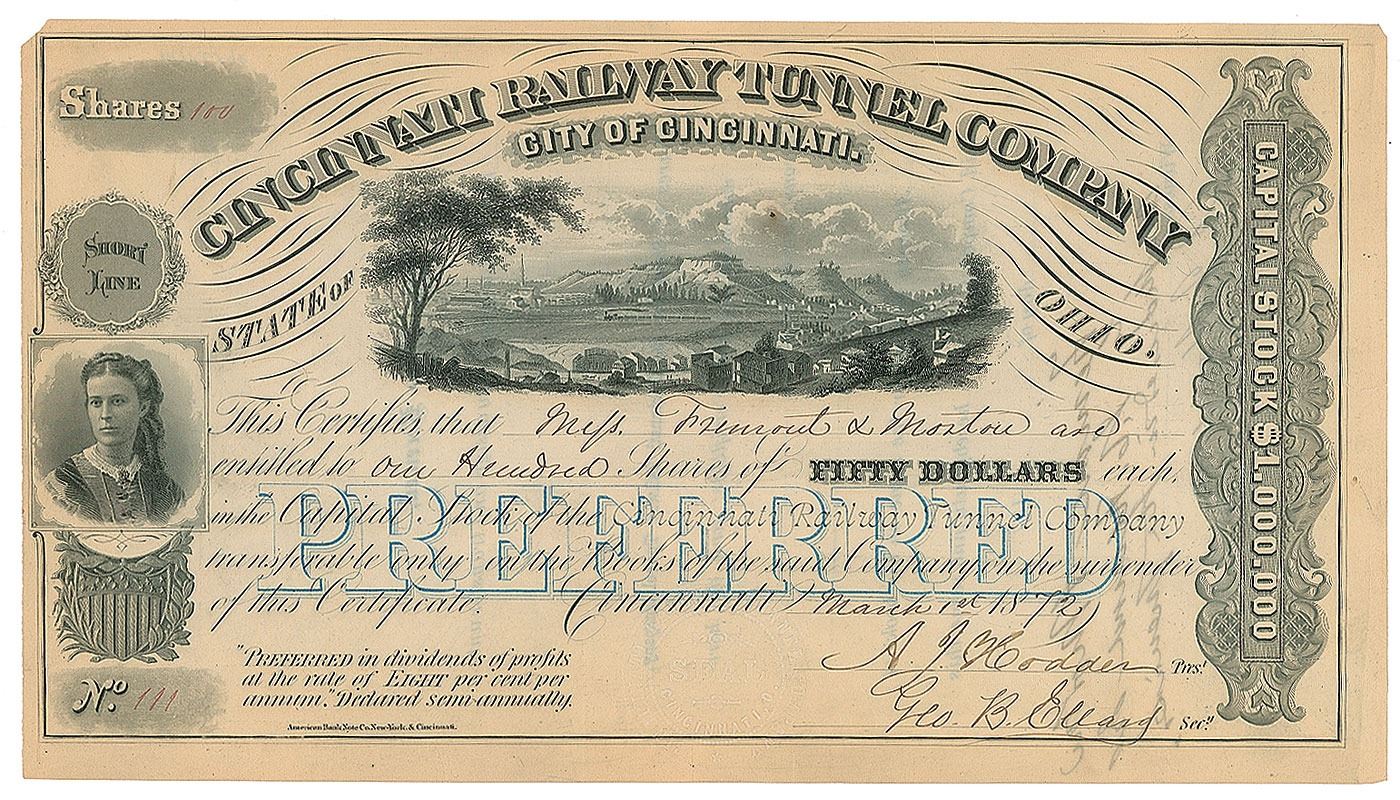 Shares 100
CINCINNATI RAILWAY TUNNEL COMPANY
CITY OF CINCINNATI.
STATE OF OHIO.
SHORT
LINE
CAPITAL STOCK $1,000,000
This Certifies, that Mess. Fremont & Morton are
entitled to One Hundred Shares of FIFTY DOLLARS each,
in the Capital Stock of the Cincinnati Railway Tunnel Company
transferable only on the Books of the said Company on the surrender
of this Certificate. Cincinnati March 1st 1872
PREFERRED
A. J. Hodder Pres.t
Geo. B. Ellard Sec.y
"PREFERRED in dividends of profits
at the rate of EIGHT per cent per
annum." Declared semi-annually.
No. 111
American Bank Note Co. New-York. & Cincinnati.